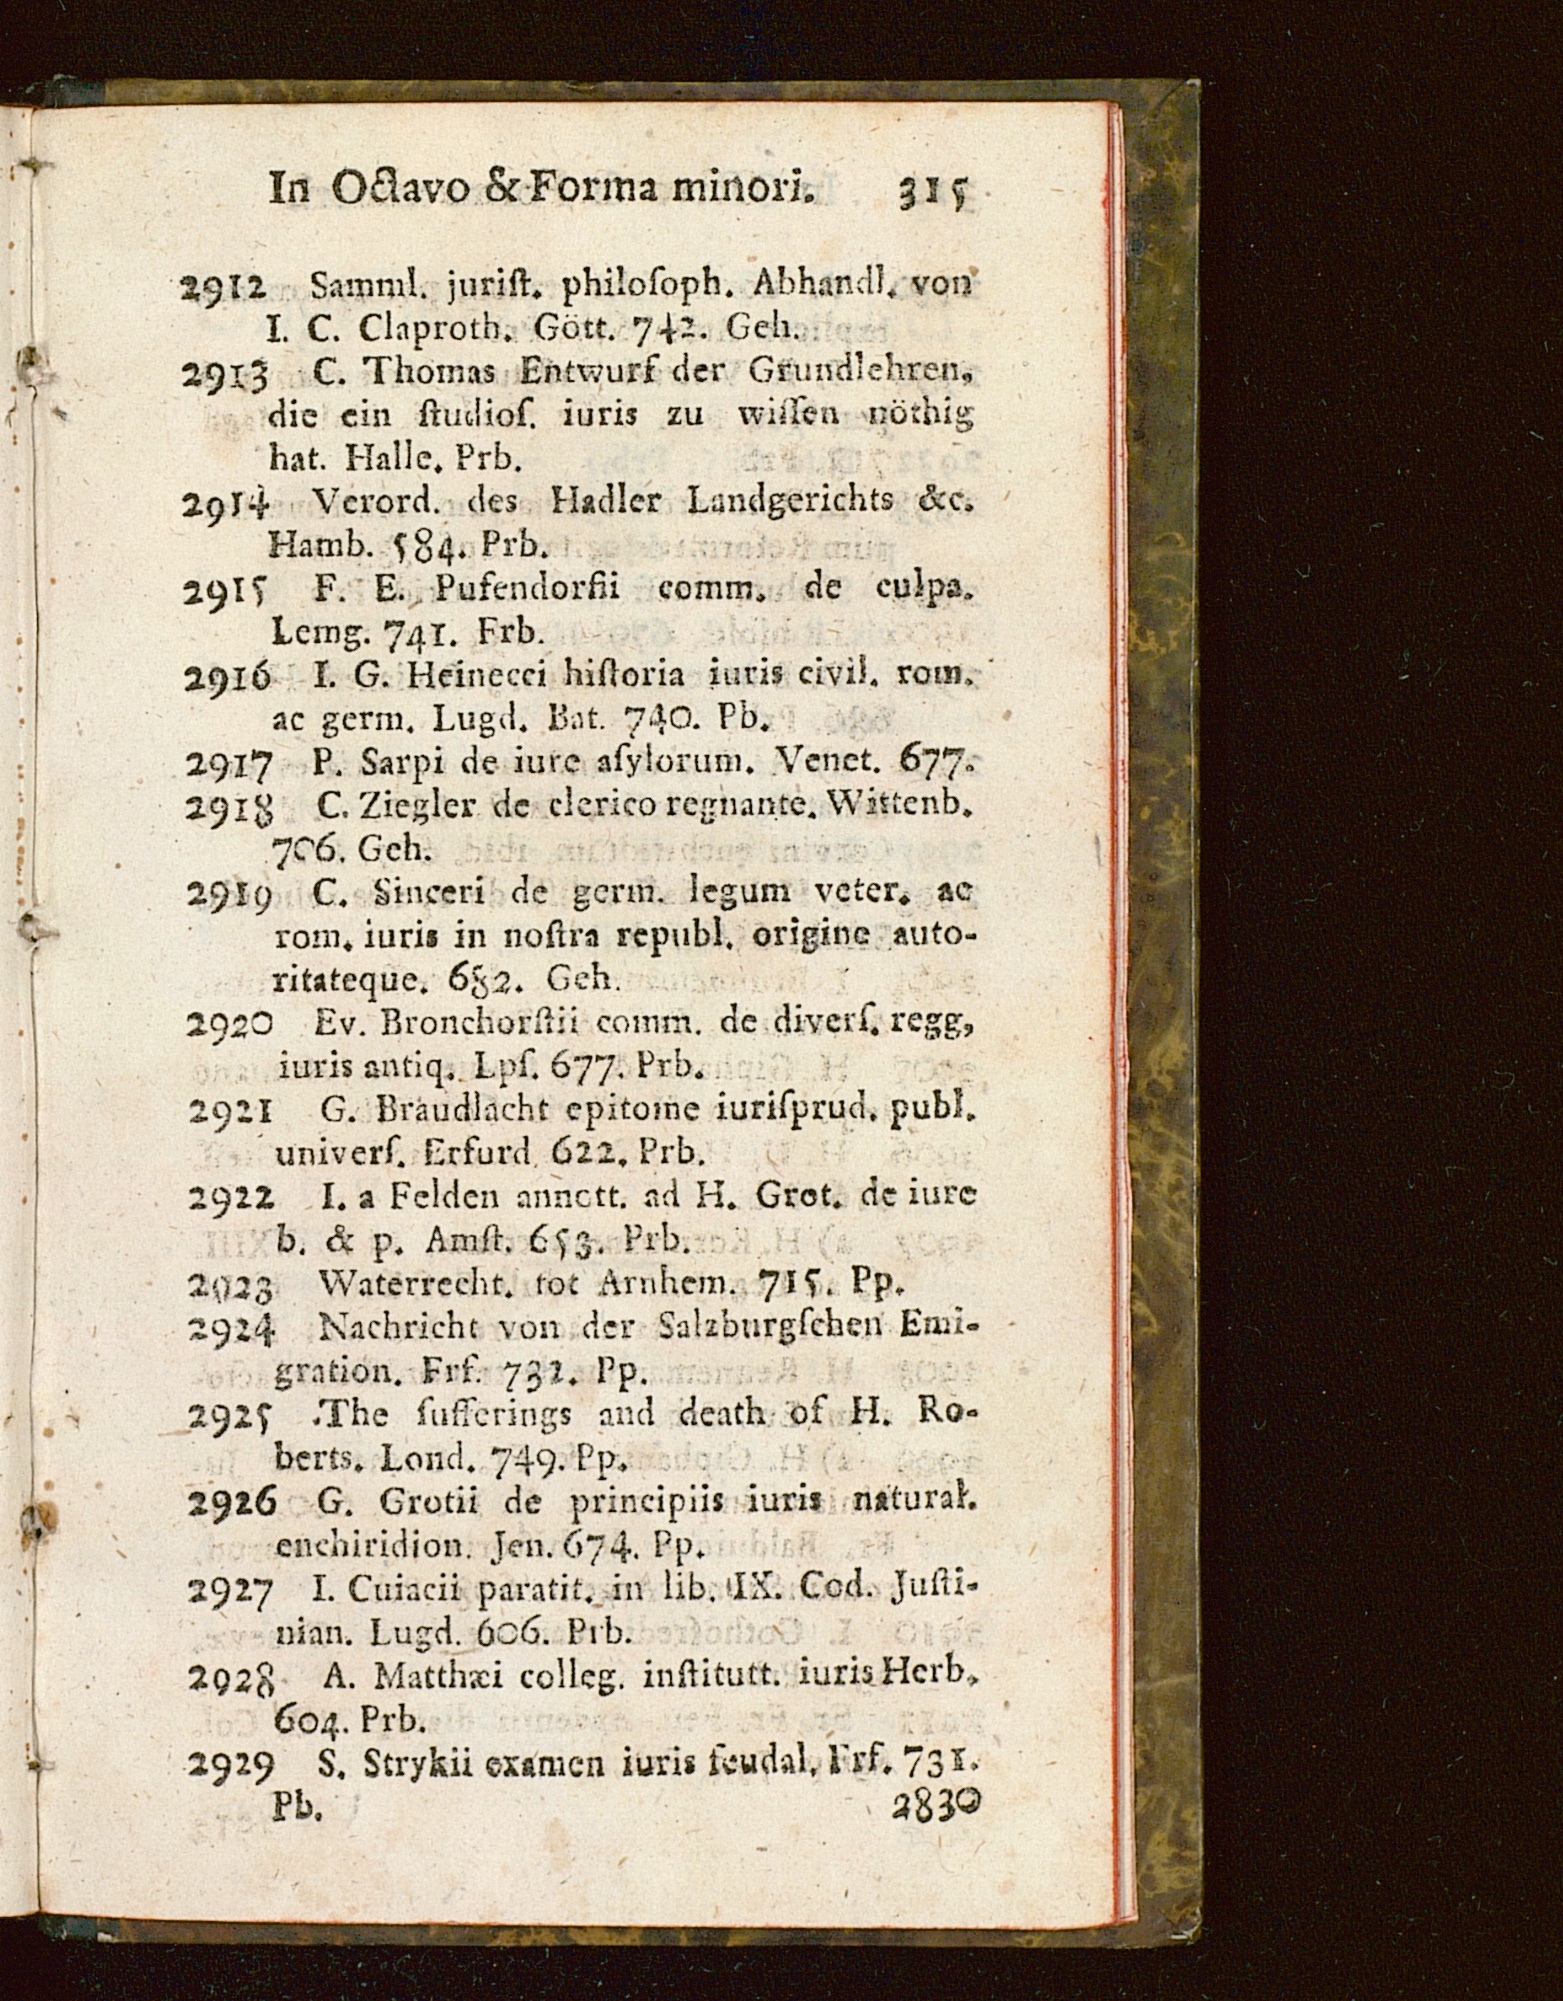 In Octavo & Forma minori. 315
2912 Samml. juriſt. philoſoph. Abhandl. von
I. C. Claproth. Gött. 742. Geh.
2913 C. Thomas Entwurf der Grundlehren,
die ein ſtudioſ. iuris zu wiſſen nöthig
hat. Halle. Prb.
2914 Verord. des Hadler Landgerichts &c.
Hamb. 584. Prb.
2915 F. E. Pufendorfii comm. de culpa.
Lemg. 741. Frb.
2916 I. G. Heinecci hiſtoria iuris civil. rom.
ac germ. Lugd. Bat. 740. Pb.
2917 P. Sarpi de iure aſylorum. Venet. 677.
2918 C. Ziegler de clerico regnante. Wittenb.
706. Geh.
2919 C. Sinceri de germ. legum veter. ac
rom. iuris in noſtra republ. origine auto-
ritateque. 682. Geh.
2920 Ev. Bronchorſtii comm. de diverſ. regg,
iuris antiq. Lpſ. 677. Prb.
2921 G. Braudlacht epitome iuriſprud. publ.
univerſ. Erfurd. 622. Prb.
2922 I. a Felden annott. ad H. Grot. de iure
b. & p. Amſt. 653. Prb.
2923 Waterrecht. tot Arnhem. 715. Pp.
2924 Nachricht von der Salzburgſchen Emi-
gration. Frf. 732. Pp.
2925 The ſufferings and death of H. Ro-
berts. Lond. 749. Pp.
2926 G. Grotii de principiis iuris natural.
enchiridion. Jen. 674. Pp.
2927 I. Cuiacii paratit. in lib. IX. Cod. Juſti-
nian. Lugd. 606. Prb.
2928 A. Matthæi colleg. inſtitutt. iuris Herb.
604. Prb.
2929 S. Strykii examen iuris feudal. Frf. 731.
Pb. 2830